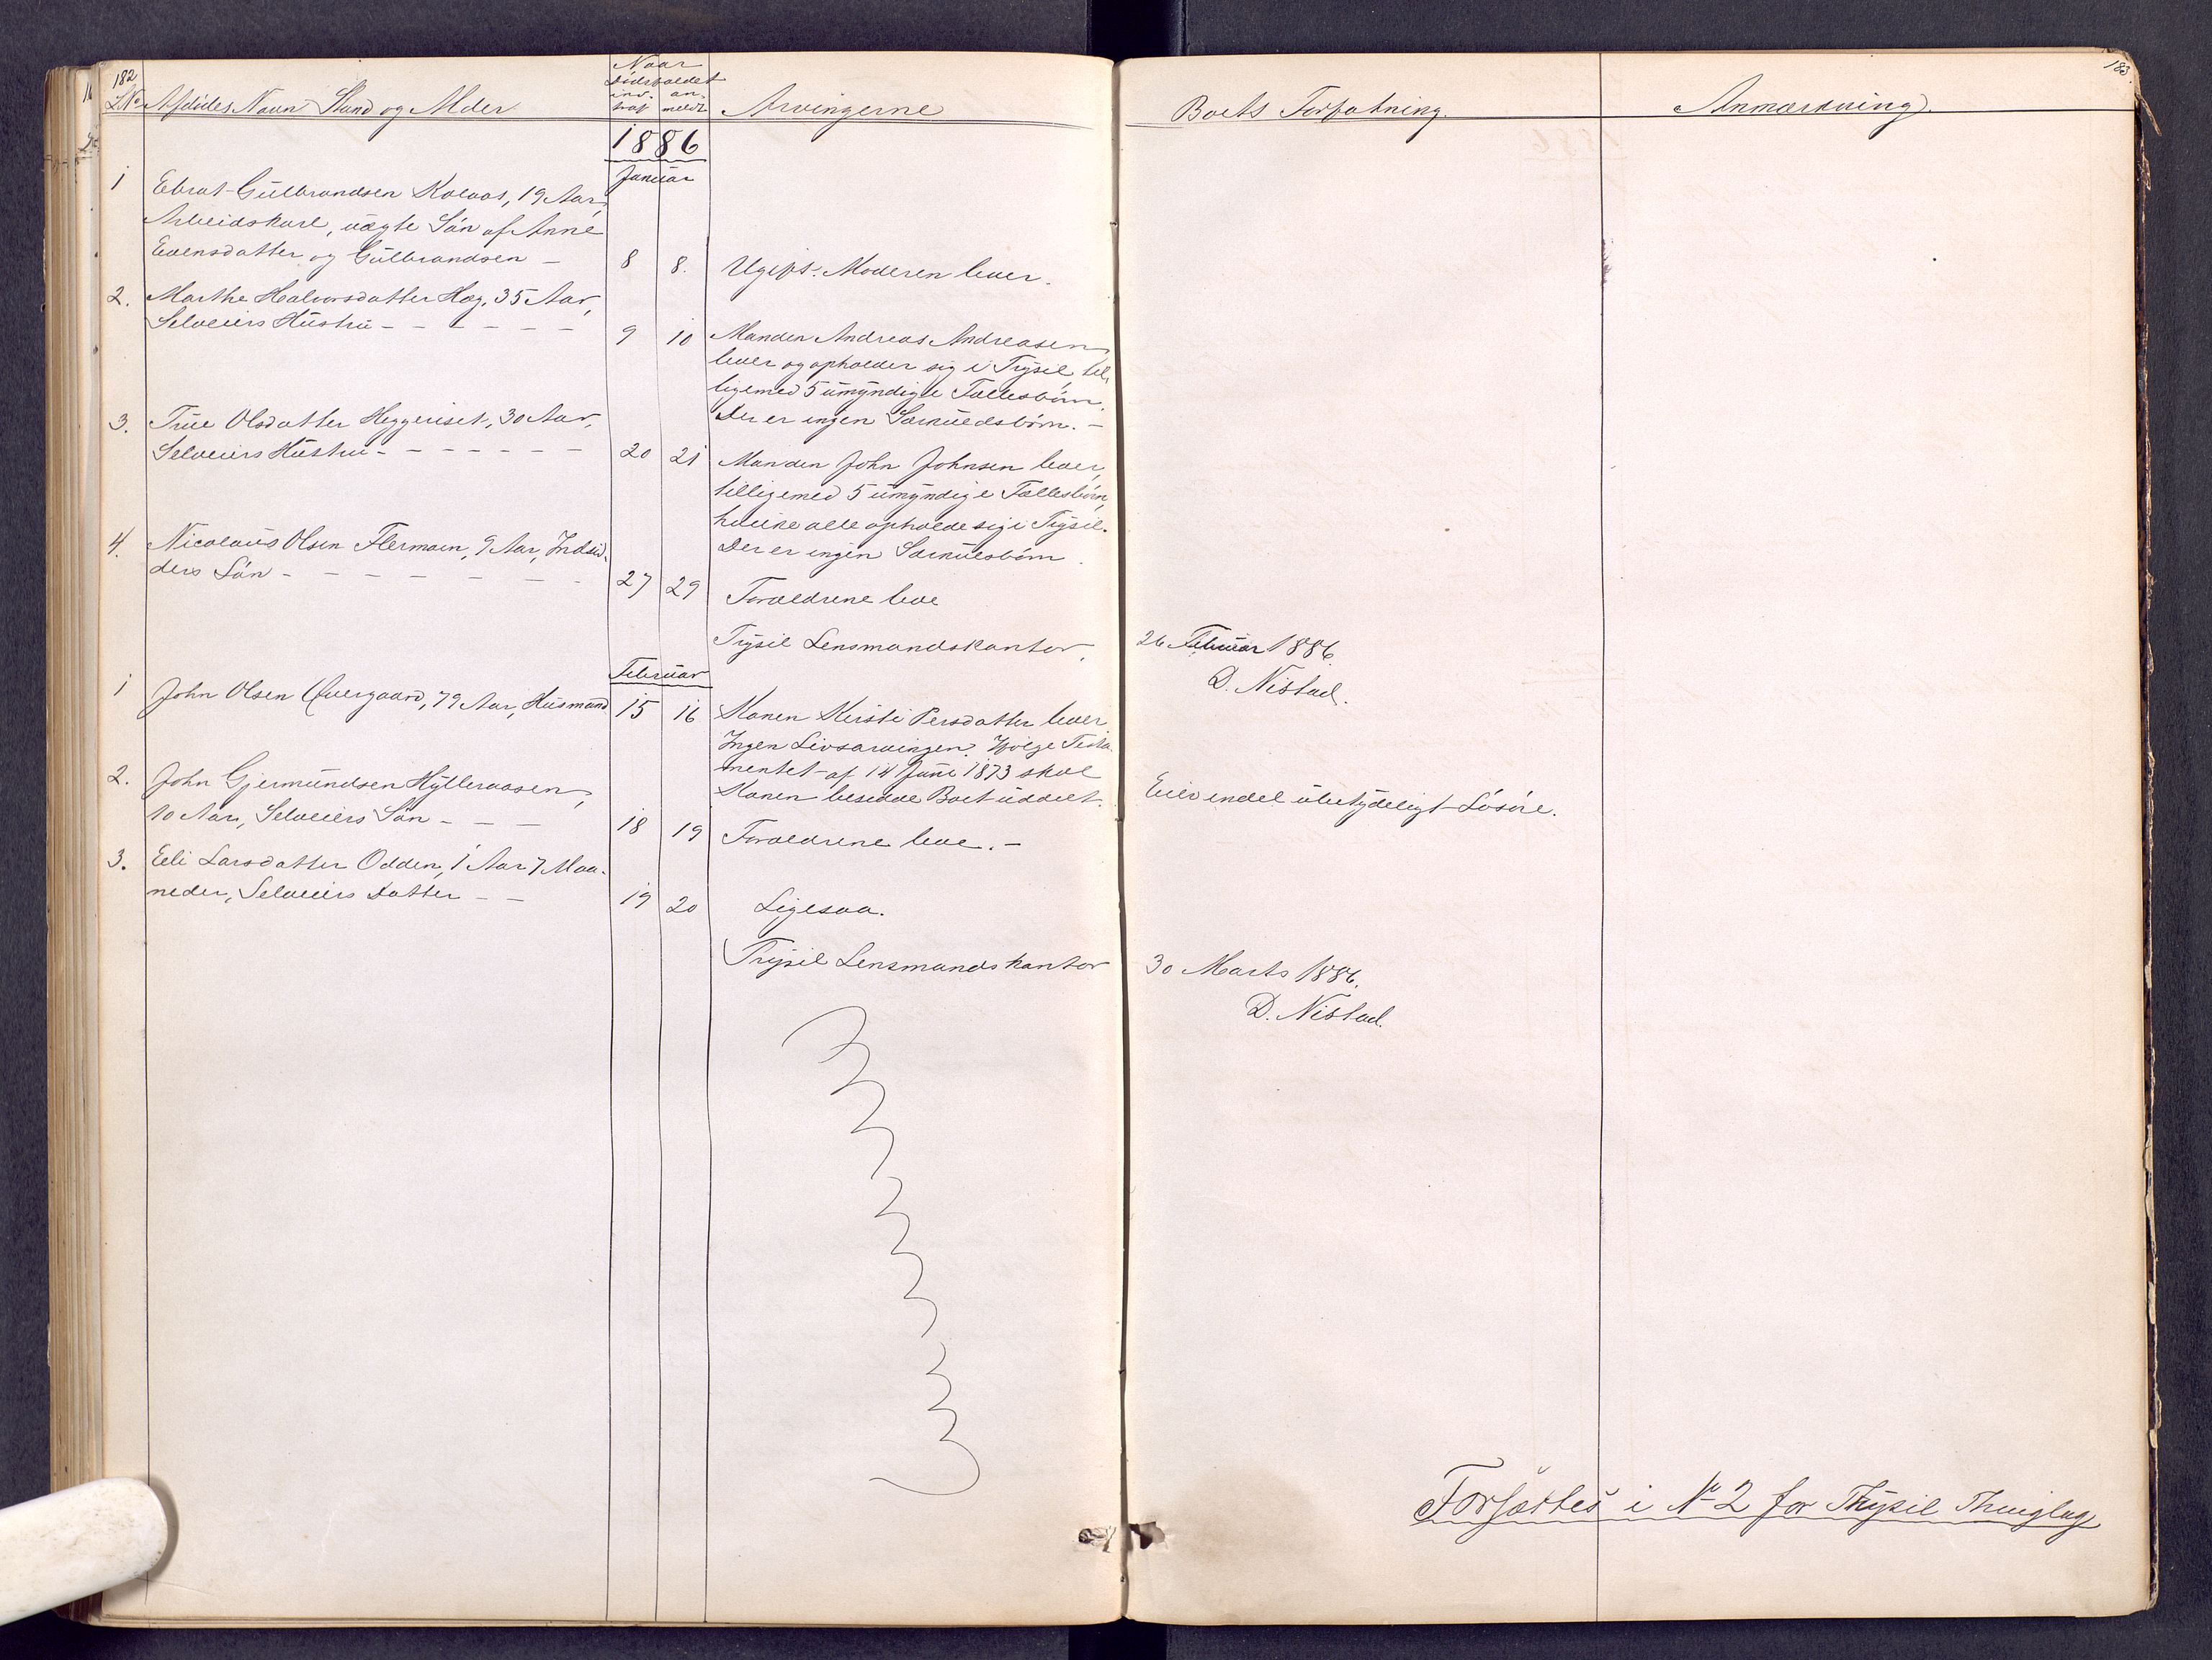 182
LNo Afdødes Navn Stand og Alder
Naar
Dødsfaldet
ind- an-
traf meldt
Arvingerne
1886
Januar
1 Gulbrandsen 19 Aar,
Arbeidskarl, uægte Søn af Anne
Evensdatter og Gulbrandsen - 8 8. Ugift. Moderen lever.
2. Marthe Halvorsdatter Hag, 35 Aar,
Selveiers Hustru - - - - - - 9 10 Manden Andreas Andreasen
lever og opholder sig i Trysil til-
ligemed 5 umyndige Fællesbørn.
Der er ingen Særkuldsbørn. -
3. Olsdatter Heggeriset, 30 Aar,
Selveiers Hustru - - - - - - - 20 21 Manden John Johnsen lever,
tilligemed 5 umyndige Fællesbørn,
hvilke alle opholde sig i Trysil.
Der er ingen Særkulsbørn.
4. Nicolaus Olsen Flermoen, 9 Aar, Indsid-
ders Søn - - - - - - - - 27 29 Forældrene leve
Trysil Lensmandskontor,
Februar
1 John Olsen Øvergaard, 79 Aar, Husmand 15 16 Konen Kirsti Persdatter lever
Ingen Livsarvinger. Ifølge Testa-
mentet af 14 Juni 1873 skal
Konen besidde Boet uddelt.
2. John Gjermundsen Hylleraasen,
10 Aar, Selveiers Søn - - - 18 19 Forældrene leve. -
3. Eli Larsdatter Odden, 1 Aar 7 Maa-
neder, Selveiers Datter - - 19 20 Ligesaa.
Trysil Lensmandskontor
183.
Boets Forfatning. Anmærkning.
26 Februar 1886
D. Nistad.
Eier endel ubetydeligt Løsøre.
30 Marts 1886.
D. Nistad.
Forsættes i No 2 for Thrysil Thinglag